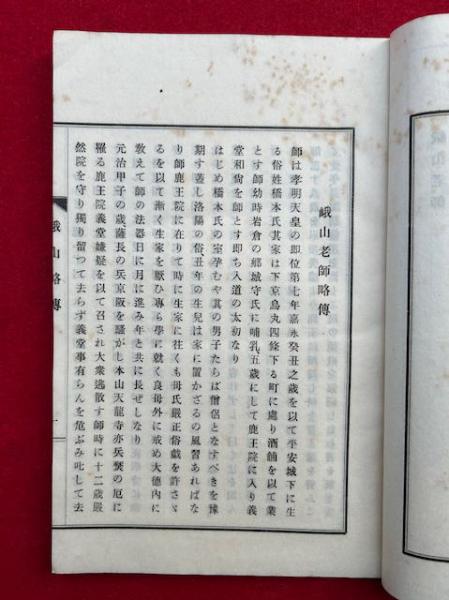 峨山老師略傳
師は孝明天皇の即位第七年嘉永癸丑之歳を以て平安城下に生
る俗姓橋本氏其家は下京烏丸四條下る町に處り酒舗を以て業
とす師幼時岩倉の郷城守氏に哺乳、五歳にして鹿王院に入り義
堂和尚を師とす即ち入道の太初なり
はじめ橋本氏の室孕むや其の男子たらば僧侶となすべきを豫
期す蓋し洛陽の俗、丑年の生兒は家に置かざるの風習あればな
り師鹿王院に在りて時に生家に往くも母氏嚴正俗戲を許さゞ
るを以て漸く生家を厭ひ專ら學に就く良母外に戒め大德内に
敎えて師の法器日に月に進み年と共に長ぜしなり
元治甲子の歳薩長の兵京阪を騷がし本山天龍寺亦兵燹の厄に
罹る鹿王院義堂嫌疑を以て召され大衆逃散す師時に十二歳嚴
然院を守り獨り留つて去らず義堂事有らんを危ぶみ叱して去
峨山略傳
一